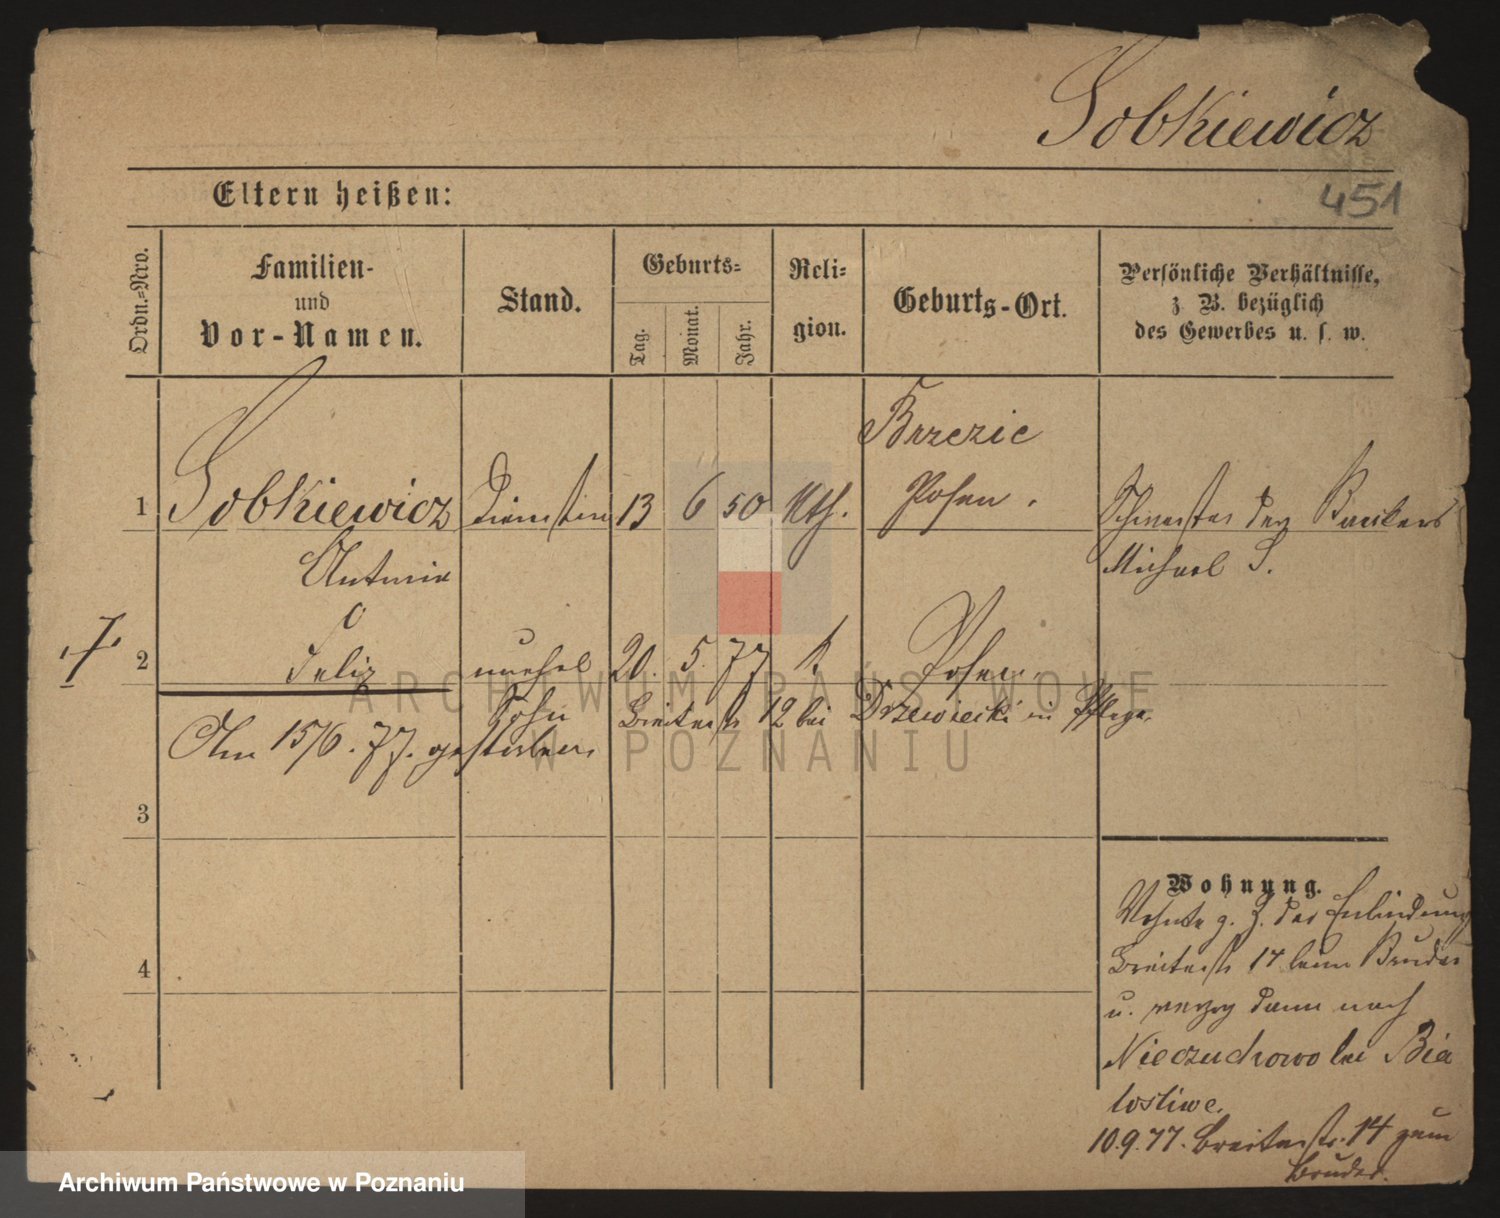 Sobkiewicz
Eltern heißen:
451
Ordn.-Nro.
Familien-
und
Vor-Namen.
Stand.
Geburts-
Tag.
Monat.
Jahr.
Reli-
gion.
Geburts-Ort.
Persönliche Verhältnisse,
z. B. bezüglich
des Gewerbes u. s. w.
Brzezie
1 Sobkiewicz 13 6 50 Kth. Posen. Schwester des
Antonie Michael S.
2 Felix unehel 20. 5. 77 k. Posen.
Sohn Breitestr 12 bei Drzewiecki in Pflege.
Am 15/6. 77. gestorben
3
4
Wohnung.
Wohnte z. Z. der Enbindung
Breitestr 14 beim Bruder
u. verzog dann nach
Nieczuchowo bei Bia
losliwe.
10.9.77. Breitestr. 14 zum
Bruder.
ARCHIWUM PAŃSTWOWE
W POZNANIU
Archiwum Państwowe w Poznaniu